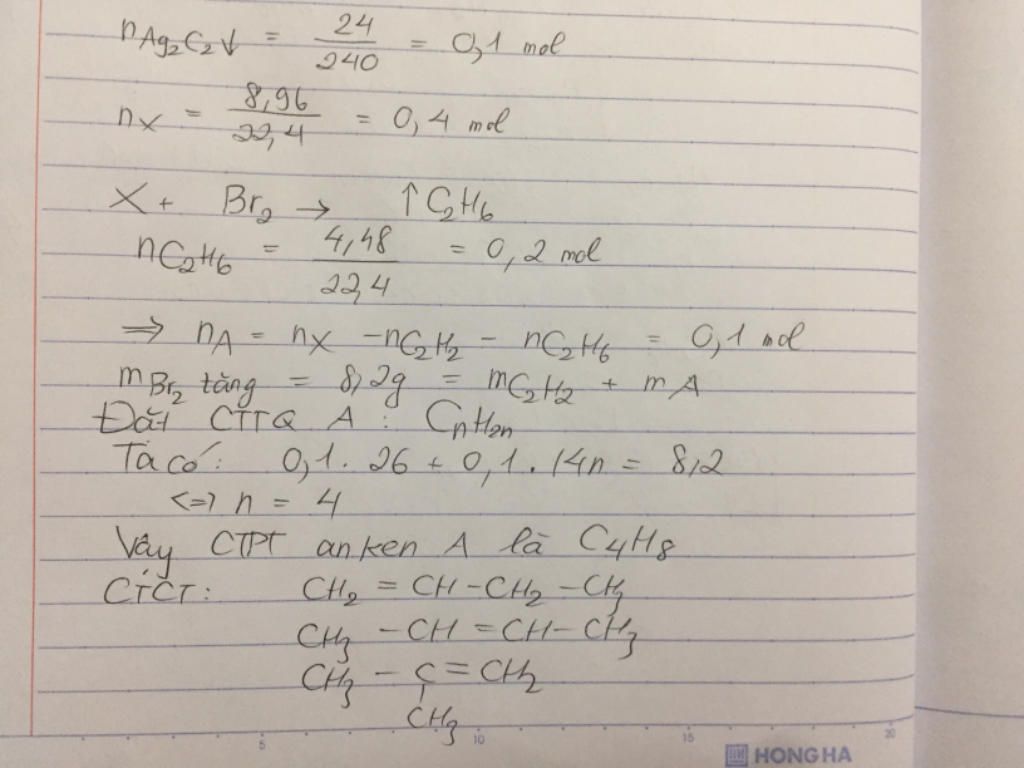 nAg₂C₂↓ = 24/240 = 0,1 mol
nX = 8,96/22,4 = 0,4 mol
X + Br₂ → ↑C₂H₆
nC₂H₆ = 4,48/22,4 = 0,2 mol
⇒ nA = nX - nC₂H₂ - nC₂H₆ = 0,1 mol
mBr₂ tăng = 8,2g = mC₂H₂ + mA
Đặt CTTQ A : CnH2n
Ta có: 0,1 . 26 + 0,1 . 14n = 8,2
<=> n = 4
Vậy CTPT anken A là C₄H₈
CTCT: CH₂ = CH - CH₂ - CH₃
CH₃ - CH = CH - CH₃
CH₃ - C = CH₂
CH₃
5 10 15 20
HH HONG HA